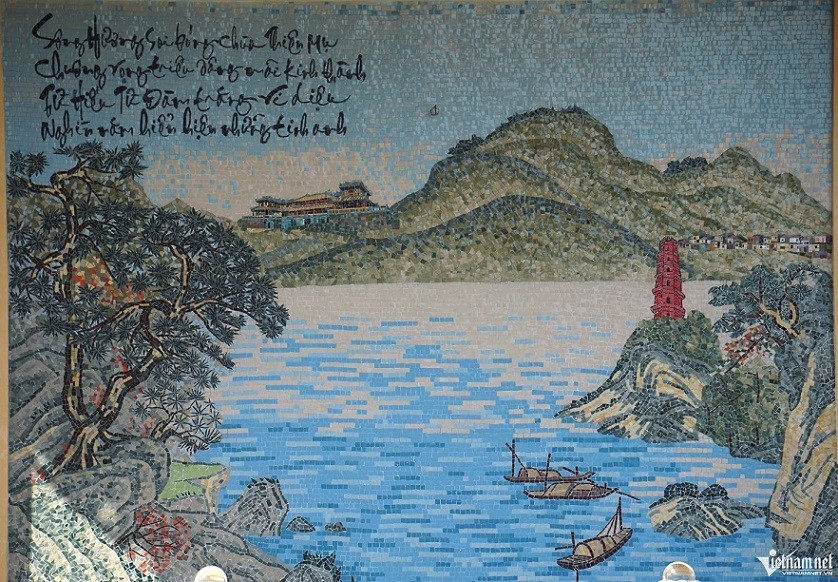 Sông Hương soi bóng chùa Thiên Mụ
Chuông vọng triều kinh thành
Từ Hiếu Từ Đàm vi diệu
Nghìn năm hiển hiện những tinh anh
vietnamnet
VIETNAMNET.VN